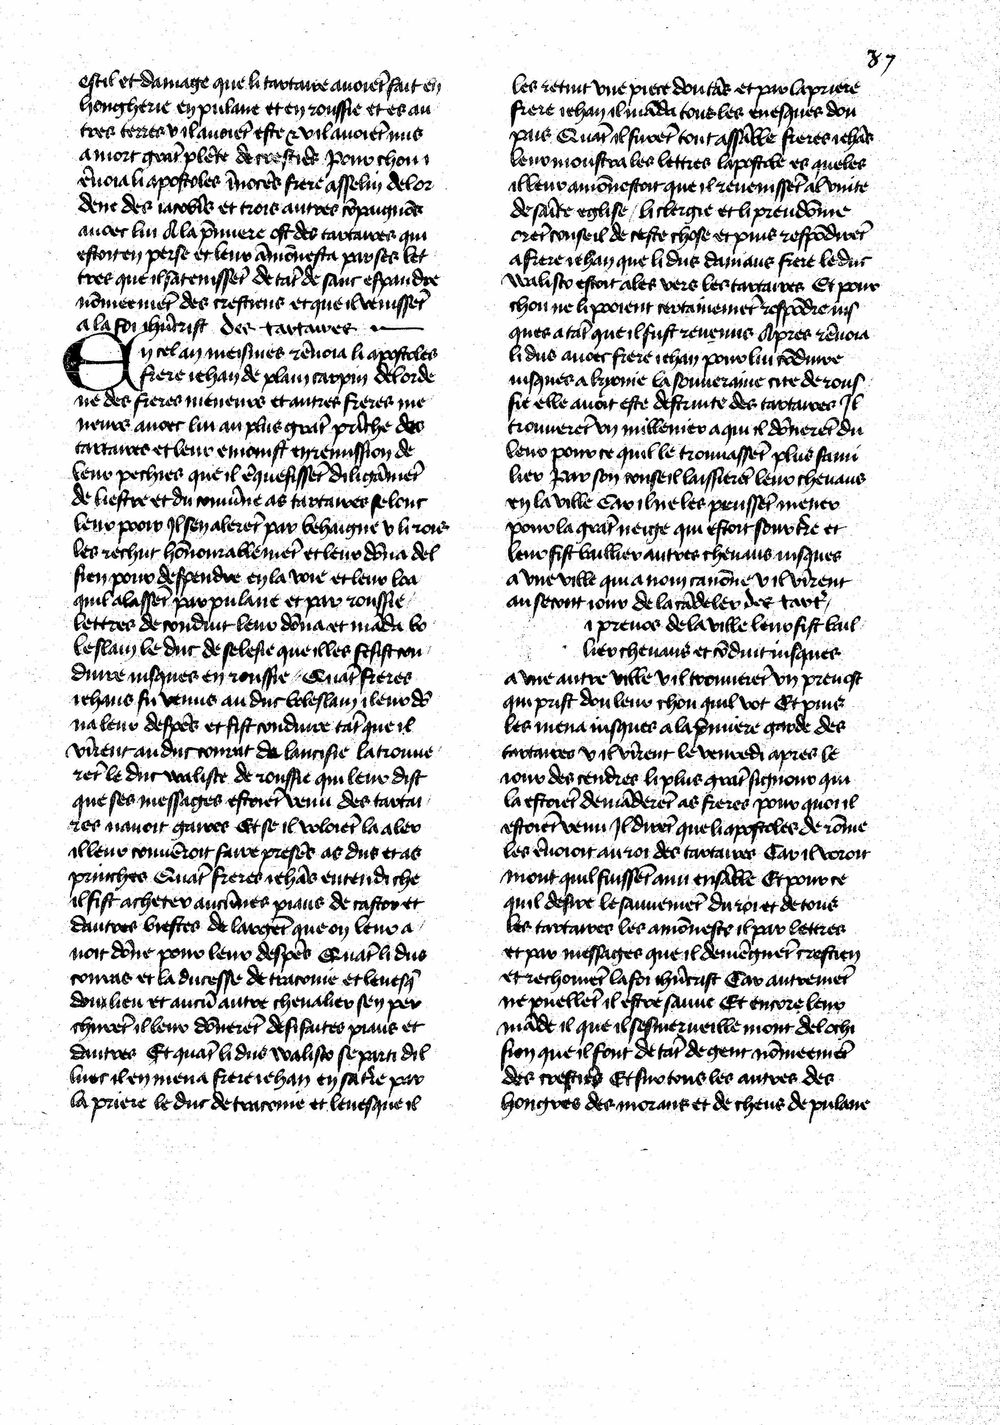 87
estil et damage que li tartare auoiēt fait en
hongherie en pulane et en roussie et es au
tres terres v il auoiēt este & v il auoiēt mis
a mort grāt plēte de crestiēs Pour chou i
ēuoia li apostoles īnocēs frere asselin de lor
dene des iacobīs et trois autres cōpagnōs
auoec lui A la p̄miere ost des tartares qui
estoit en perse et leur āmōnesta par ses let
tres que il satenissēt de tāt de sanc espandre
nōmeemēt des crestiens et que il venissēt
a la foi ihūcrist des tartares
En cel an meismes rēuoia li apostoles
frere iehan de plain carpin de lorde
ne des freres meneurs et autres freres me
neurs auoec lui au plus grāt prīche des
tartares et leur enioinst en remission de
leur pechies que il ēquesissēt diligāmēt
de liestre et du comūne as tartares selonc
leur pooir Il sen alerēt par behaigne v li rois
les rechut hōnourablemēt et leur dōna del
sien pour despendre en la voie et leur loa
quil alassēt par pulane et par roussie
lettres de conduit leur dōna et māda bo
leslain le duc de selesie que illes fesist con
duire iusques en roussie Quāt freres
iehans fu venus au duc boleslain il leur dō
na leur despēs et fist conduire tāt que il
vīrent au duc conrat de lancisie la trouue
rēt le duc walisce de roussie qui leur dist
que ses messages estoiēt venu des tartai
res nauoit gaires Et se il voloiēt la aler
il leur couuēroit faire presēs as dus et as
princhs Quāt freres iehās entendi che
il fist acheter aucūnes piaus de castor et
dautres biestes de largēt que on leur a
uoit dōne pour leur despēs Quāt li dus
conras et la ducesse de traconie et leuesq̄
dou lieu et aucū autre cheualier sen per
churēt il leur dōnerēt de sifaites piaus et
dautres Et quāt li dus walisco se parti dil
luec il en mena frere iehan en sa t̄re par
la priere le duc de traconie et leuesque il
les retint vne piece dou tās et par la priere
frere iehan il māda tous les euesques dou
pais Quāt il furēt tout assāble freres iehās
leur moustra les lettres lapostole es queles
il leur amōnestoit que il reuenissēt al vnite
de saīte eglise / li clergie et li preudōme
orēt conseil de ceste chose et puis respōdirēt
a frere iehan que li dus damaus frere le duc
walisco estoit ales vers les tartares Et pour
chou ne li pooient certainemēt respōdre ius
ques a tāt que il fust reuenus Apres rēuoia
li dus auoec frere iehan pour lui cōduire
iusques a kyonie la souueraine cite de rous
sie elle auoit este destruite des tartares Il
trouuerēt vn millenier a qui il dōnerēt du
leur pour ce quil le trouuassēt plus fami
lier Par son conseil laissierēt leur cheuaus
en la ville Car il ne les peussēt mener
pour la grāt neige qui estoit sour t̄re et
leur fist baillier autres cheuaus iusques
a vne ville qui a non canōne v il vīrent
au secont iour de la cādeler des tart̄
i preuos de la ville leur fist bail
lier cheuaus et cōduit iusques
a vne autre ville v il trouuerēt vn preuost
qui prist dou leur chou quil vot Et puis
les mena iusques a la p̄miere garde des
tartares v il vīrent le venredi apres le
iour des cendres li plus grāt signour qui
la estoiēt demāderēt as freres pour quoi il
estoiēt venu Il dirēt que li apostoles de rōme
les ēuoioit au roi des tartares Car il voroit
mout quil fuissēt ami ensāble Et pour ce
quil desire le sauuemēt du roi et de tous
les tartares les amōneste il par lettres
et par messages que il deuiēgnēt crestien
et rechoiuēt la foi ihūcrist Car autremēt
ne puellēt il estre sauue Et encore leur
māde il que il sesmerueille mout del ochi
sion que il font de tāt de gent nōmeemēt
des crestiēs Et sur tous les autres des
hongres des moraus et de cheus de pulane